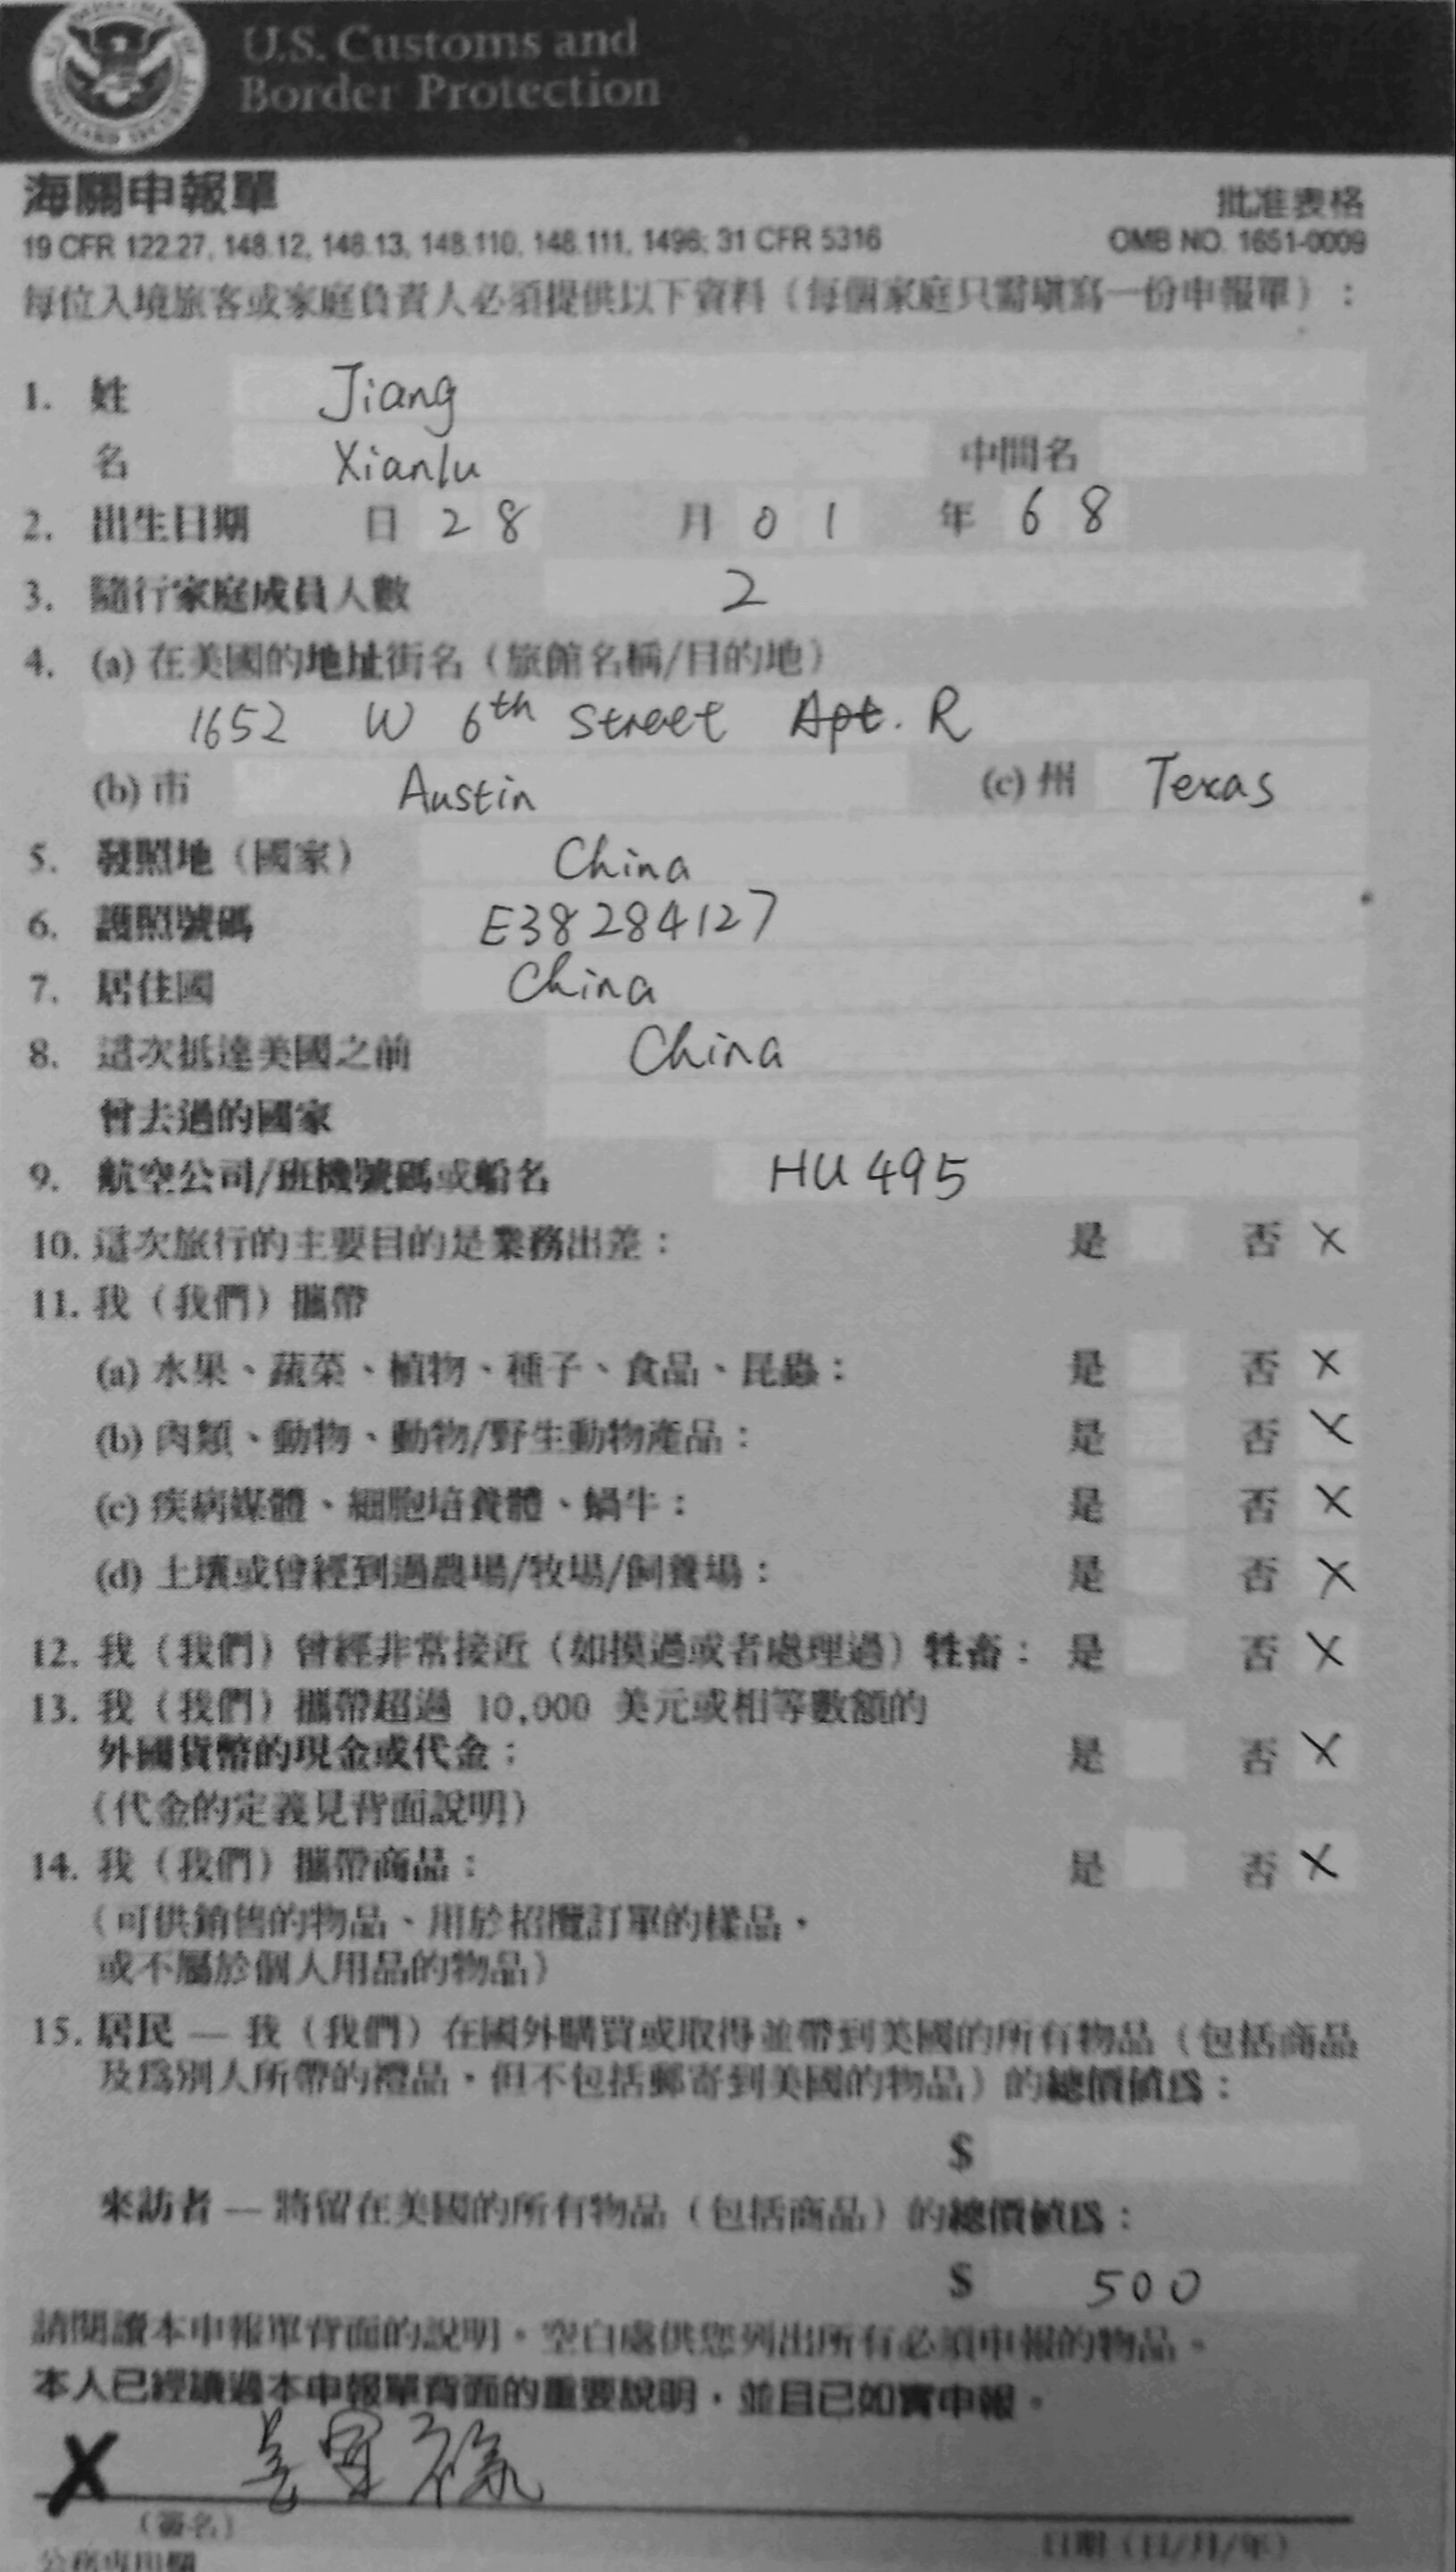 U.S. Customs and
Border Protection
海關申報單
批准表格
19 CFR 122.27, 148.12, 148.13, 148.110, 148.111, 1498; 31 CFR 5316
OMB NO. 1651-0009
每位入境旅客或家庭負責人必須提供以下資料（每個家庭只需填寫一份申報單）：
1. 姓 Jiang
名 Xianlu 中間名
2. 出生日期 日 28 月 01 年 68
3. 隨行家庭成員人數 2
4. (a) 在美國的地址街名（旅館名稱/目的地）
1652 W 6th Street Apt. R
(b) 市 Austin (c) 州 Texas
5. 發照地（國家） China
6. 護照號碼 E38284127
7. 居住國 China
8. 這次抵達美國之前 China
曾去過的國家
9. 航空公司/班機號碼或船名 HU495
10. 這次旅行的主要目的是業務出差： 是 否 X
11. 我（我們）攜帶
(a) 水果、蔬菜、植物、種子、食品、昆蟲： 是 否 X
(b) 肉類、動物、動物/野生動物產品： 是 否 X
(c) 疾病媒體、細胞培養體、蝸牛： 是 否 X
(d) 土壤或曾經到過農場/牧場/飼養場： 是 否 X
12. 我（我們）曾經非常接近（如摸過或者處理過）牲畜： 是 否 X
13. 我（我們）攜帶超過 10,000 美元或相等數額的
外國貨幣的現金或代金： 是 否 X
（代金的定義見背面說明）
14. 我（我們）攜帶商品： 是 否 X
（可供銷售的物品、用於招攬訂單的樣品，
或不屬於個人用品的物品）
15. 居民 — 我（我們）在國外購買或取得並帶到美國的所有物品（包括商品
及為別人所帶的禮品，但不包括郵寄到美國的物品）的總價值為：
$
來訪者 — 將留在美國的所有物品（包括商品）的總價值為：
$ 500
請閱讀本申報單背面的說明。空白處供您列出所有必須申報的物品。
本人已經讀過本申報單背面的重要說明，並且已如實申報。
X
（簽名）
日期（日/月/年）
公務專用欄